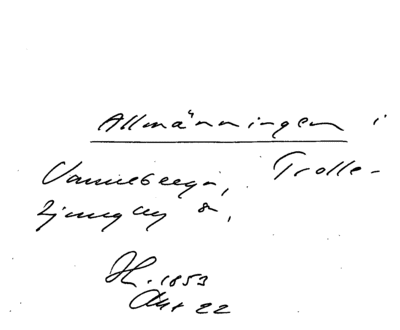 Allmänningen i
Vanneberga, Trolle-
ljungby s,
H. 1853
Akt 22